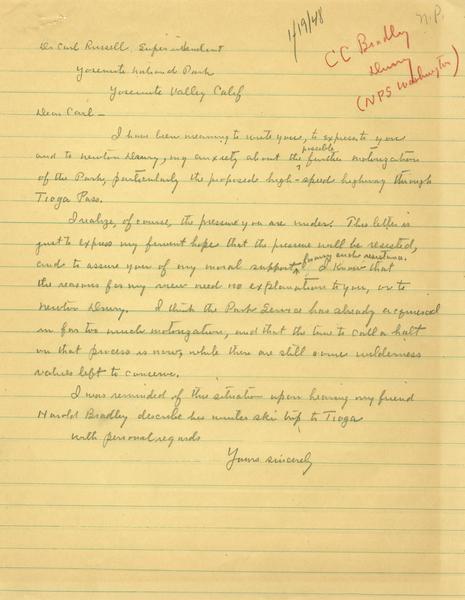 N.P.
1/19/48
CC Bradley
Drury
(NPS Washington)
Dr Carl Russell, Superintendent
Yosemite National Park
Yosemite Valley Calif
Dear Carl -
I have been meaning to write you, to express to you
and to Newton Drury, my anxiety about the possible further motorization
of the Park, particularly the proposed high-speed highway through
Tioga Pass.
I realize, of course, the pressure you are under. This letter is
just to express my fervent hope that the pressure will be resisted,
and to assure you of my moral support for any such resistance. I know that
the reasons for my view need no explanation to you, or to
Newton Drury. I think the Park Service has already acquiesced
in far too much motorization, and that the time to call a halt
on that process is now, while there are still some wilderness
values left to conserve.
I was reminded of this situation upon hearing my friend
Harold Bradley describe his winter ski trip to Tioga
With personal regards
Yours sincerely